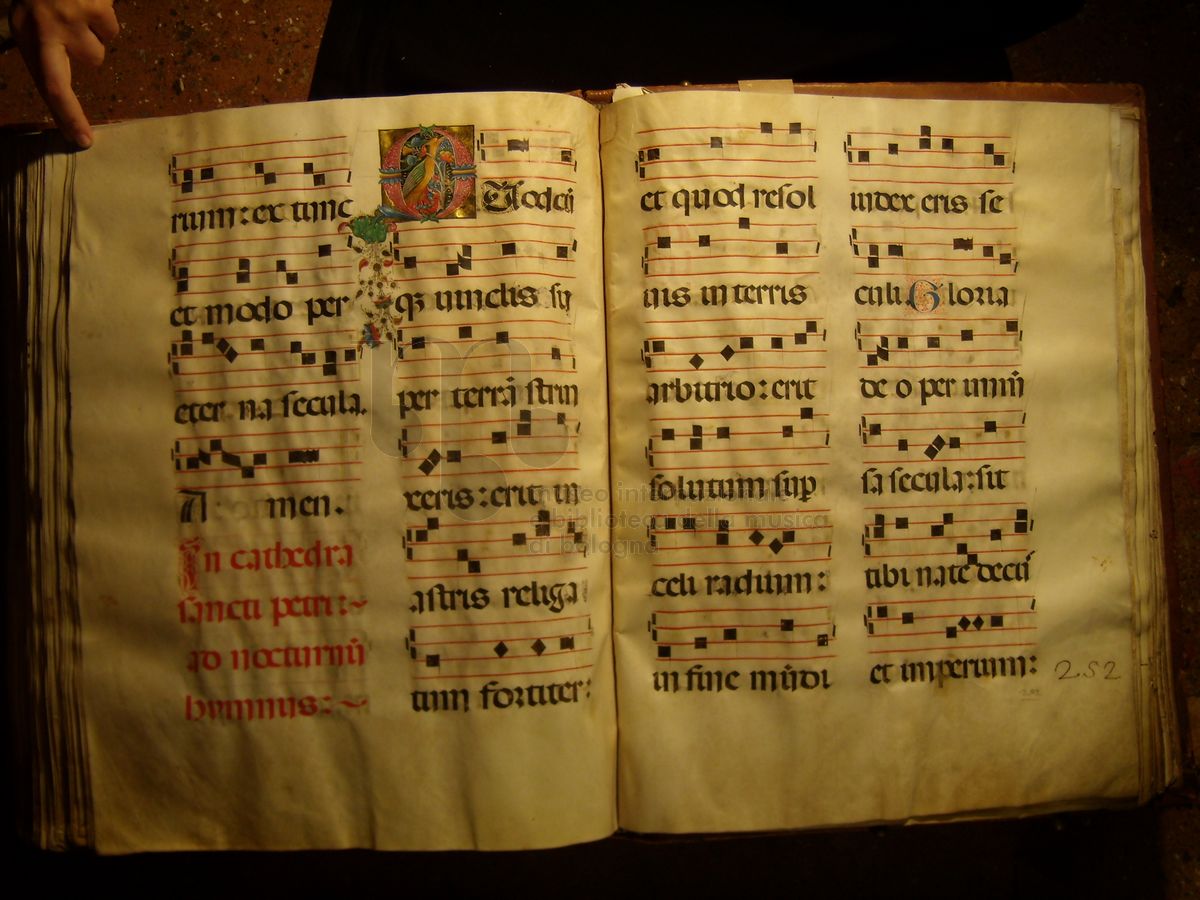 rum: ex tunc
et modo per
eter na secula.
A men.
In cathedra
sancti petri:~
ad nocturnũ
hymnus:~
QUodcũ
qȝ vinclis su
per terrã strin
xeris: erit in
astris religa
tum fortiter:
et quod resol
uis in terris
arbitrio: erit
solutum sup
celi radium:
in fine mũdi
iudex eris se
culi. Gloria
deo per immẽ
sa secula: sit
tibi nate decũ
et imperium:
252
museo internazionale
biblioteca della musica
di bologna